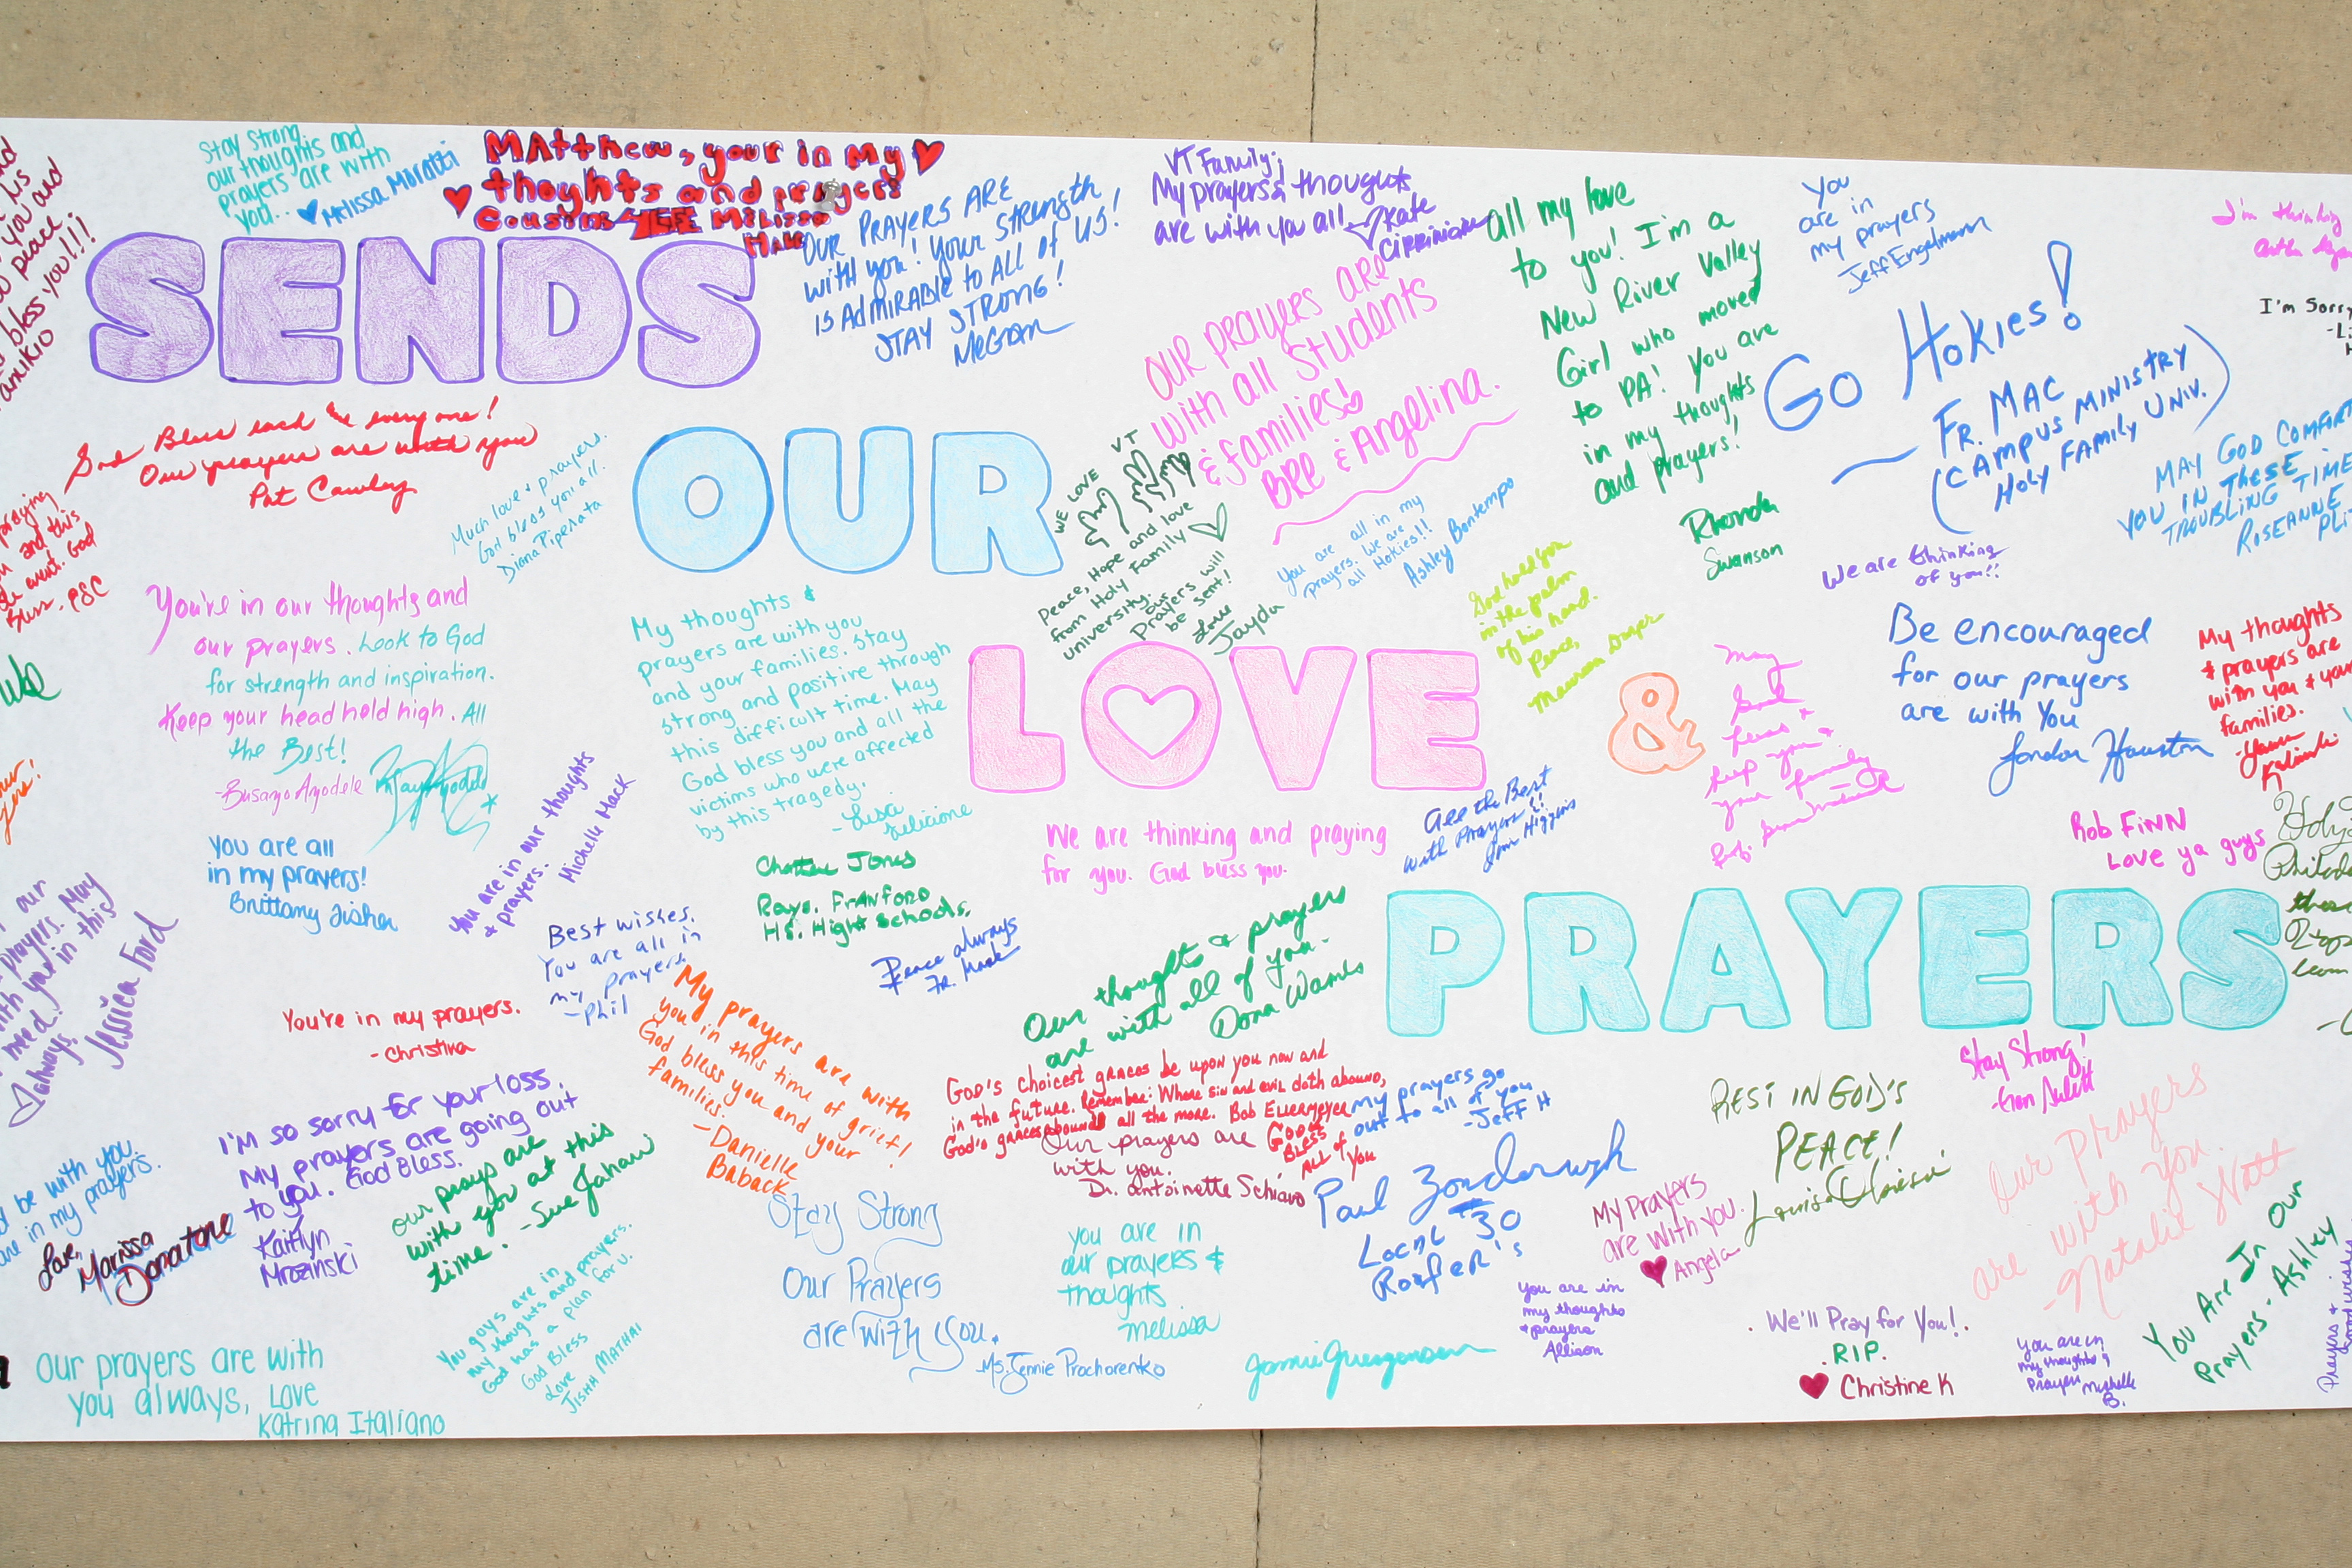 SENDS
OUR
LOVE &
PRAYERS
you and
peace
bless you!!!
Stay Strong
our thoughts and
prayers are with
you.. Melissa Moratti
MAtthew, your in My
thoyhts and prayers
Cousins Melissa
OUR PRAYERS ARE
with you! Your strength
is AdmirABle to All of US!
STAY STRONG!
Megan
VT Family;
My prayers & thoughts
are with you all
Kate
all my love
to you! I'm a
New River Valley
Girl who moved
to PA! You are
in my thoughts
and prayers!
Rhonda
Swanson
You
are in
my prayers
Jeff Engelmann
Go Hokies!
Fr. MAC
(CAMPUS MINISTRY
Holy FAMILY UNIV.)
I'm thinking
I'm Sorry
OUR prayers ARE
with all Students
& families!
BRE & Angelina.
God Bless each & everyone!
Our prayers are with you
Pat Cawley
Much love & prayers.
God bless you all.
Diana Piperata
WE LOVE VT
Peace, Hope and love
from Holy Family
university.
our
Prayers will
be sent!
Love
Jayda
You are all in my
prayers. We are
all Hokies!!!
Ashley Bontempo
God hold you
in the palm
of his hand.
Peace,
Maureen
MAY GOD COMFORT
YOU IN THESE
TROUBLING TIME
ROSEANNE
We are thinking
of you!!
praying
and this
event. God
You're in our thoughts and
our prayers. Look to God
for strength and inspiration.
Keep your head held high. All
the Best!
-Busayo Ayodele
My thoughts &
prayers are with you
and your families. Stay
strong and positive through
this difficult time. May
God bless you and all the
victims who were affected
by this tragedy.
-Lisa
Felicione
May
God
bless &
keep you &
your family
Be encouraged
for our prayers
are with You
Jordan Houston
My thoughts
& prayers are
with you & your
families.
You are all
in my prayers!
Brittany Fisher
You are in our thoughts
& prayers.
Michelle Mack
We are thinking and praying
for you. God bless you.
All the Best
with Prayers!!
Jim Higgins
Rob FiNN
Love ya guys
Jones
Rays. Franford
H.S. High Schools.
Peace always
Fr. Mack
Best wishes.
You are all in
my prayers.
-Phil
our
prayers. May
with you in this
need.
always,
Jessica Ford
You're in my prayers.
-Christina
My prayers are with
you in this time of grief!
God bless you and your
families.
-Danielle
Baback
Our thoughts & prayers
are with all of you-
Dona Wames
God's choicest graces be upon you now and
in the future. Remember: Where sin and evil doth abound,
God's graces abound all the more. Bob Ellermeyer
Our prayers are
with you.
Dr. Antoinette Schiavo
God
BLESS
ALL of
You
my prayers go
out to all of you
-Jeff H
REST IN GOD'S
PEACE!
Louisa
Stay Strong!
I'm so sorry for your loss.
My prayers are going out
to you. God Bless.
Kaitlyn
Mrozinski
our prays are
with you at this
time. -Sue
be with you.
in my prayers.
Love,
Marissa
Donatone
Stay Strong
Our Prayers
are with you.
-Ms. Jennie Prochorenko
you are in
our prayers &
thoughts
melissa
Paul
Local #30
Roofer's
My Prayers
are with you.
Angela
Our prayers
are with you.
-Natalie Statt
You Are In Our
Prayers - Ashley
You guys are in
my thoughts and prayers.
God has a plan for u.
God Bless
Love
Jishh Mathai
our prayers are with
you always, Love
Katrina Italiano
you are in
my thoughts
& prayers
Allison
. We'll Pray for You! .
. RIP.
Christine K
you are in
my thoughts &
prayers
B.
Prayers &